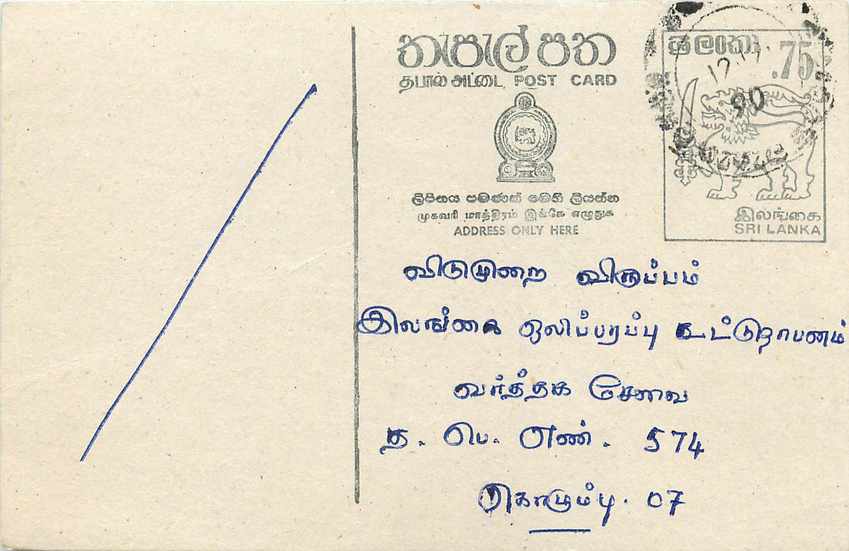 තැපැල් පත
தபால் அட்டை POST CARD
ලිපිනය පමණක් මෙහි ලියන්න
முகவரி மாத்திரம் இங்கே எழுதுக
ADDRESS ONLY HERE
ශ්‍රී ලංකා
.75
90
இலங்கை
SRI LANKA
விடுமுறை விருப்பம்
இலங்கை ஒலிபரப்பு கூட்டுதாபனம்
வர்த்தக சேவை
த. பெ. எண். 574
கொழும்பு. 07